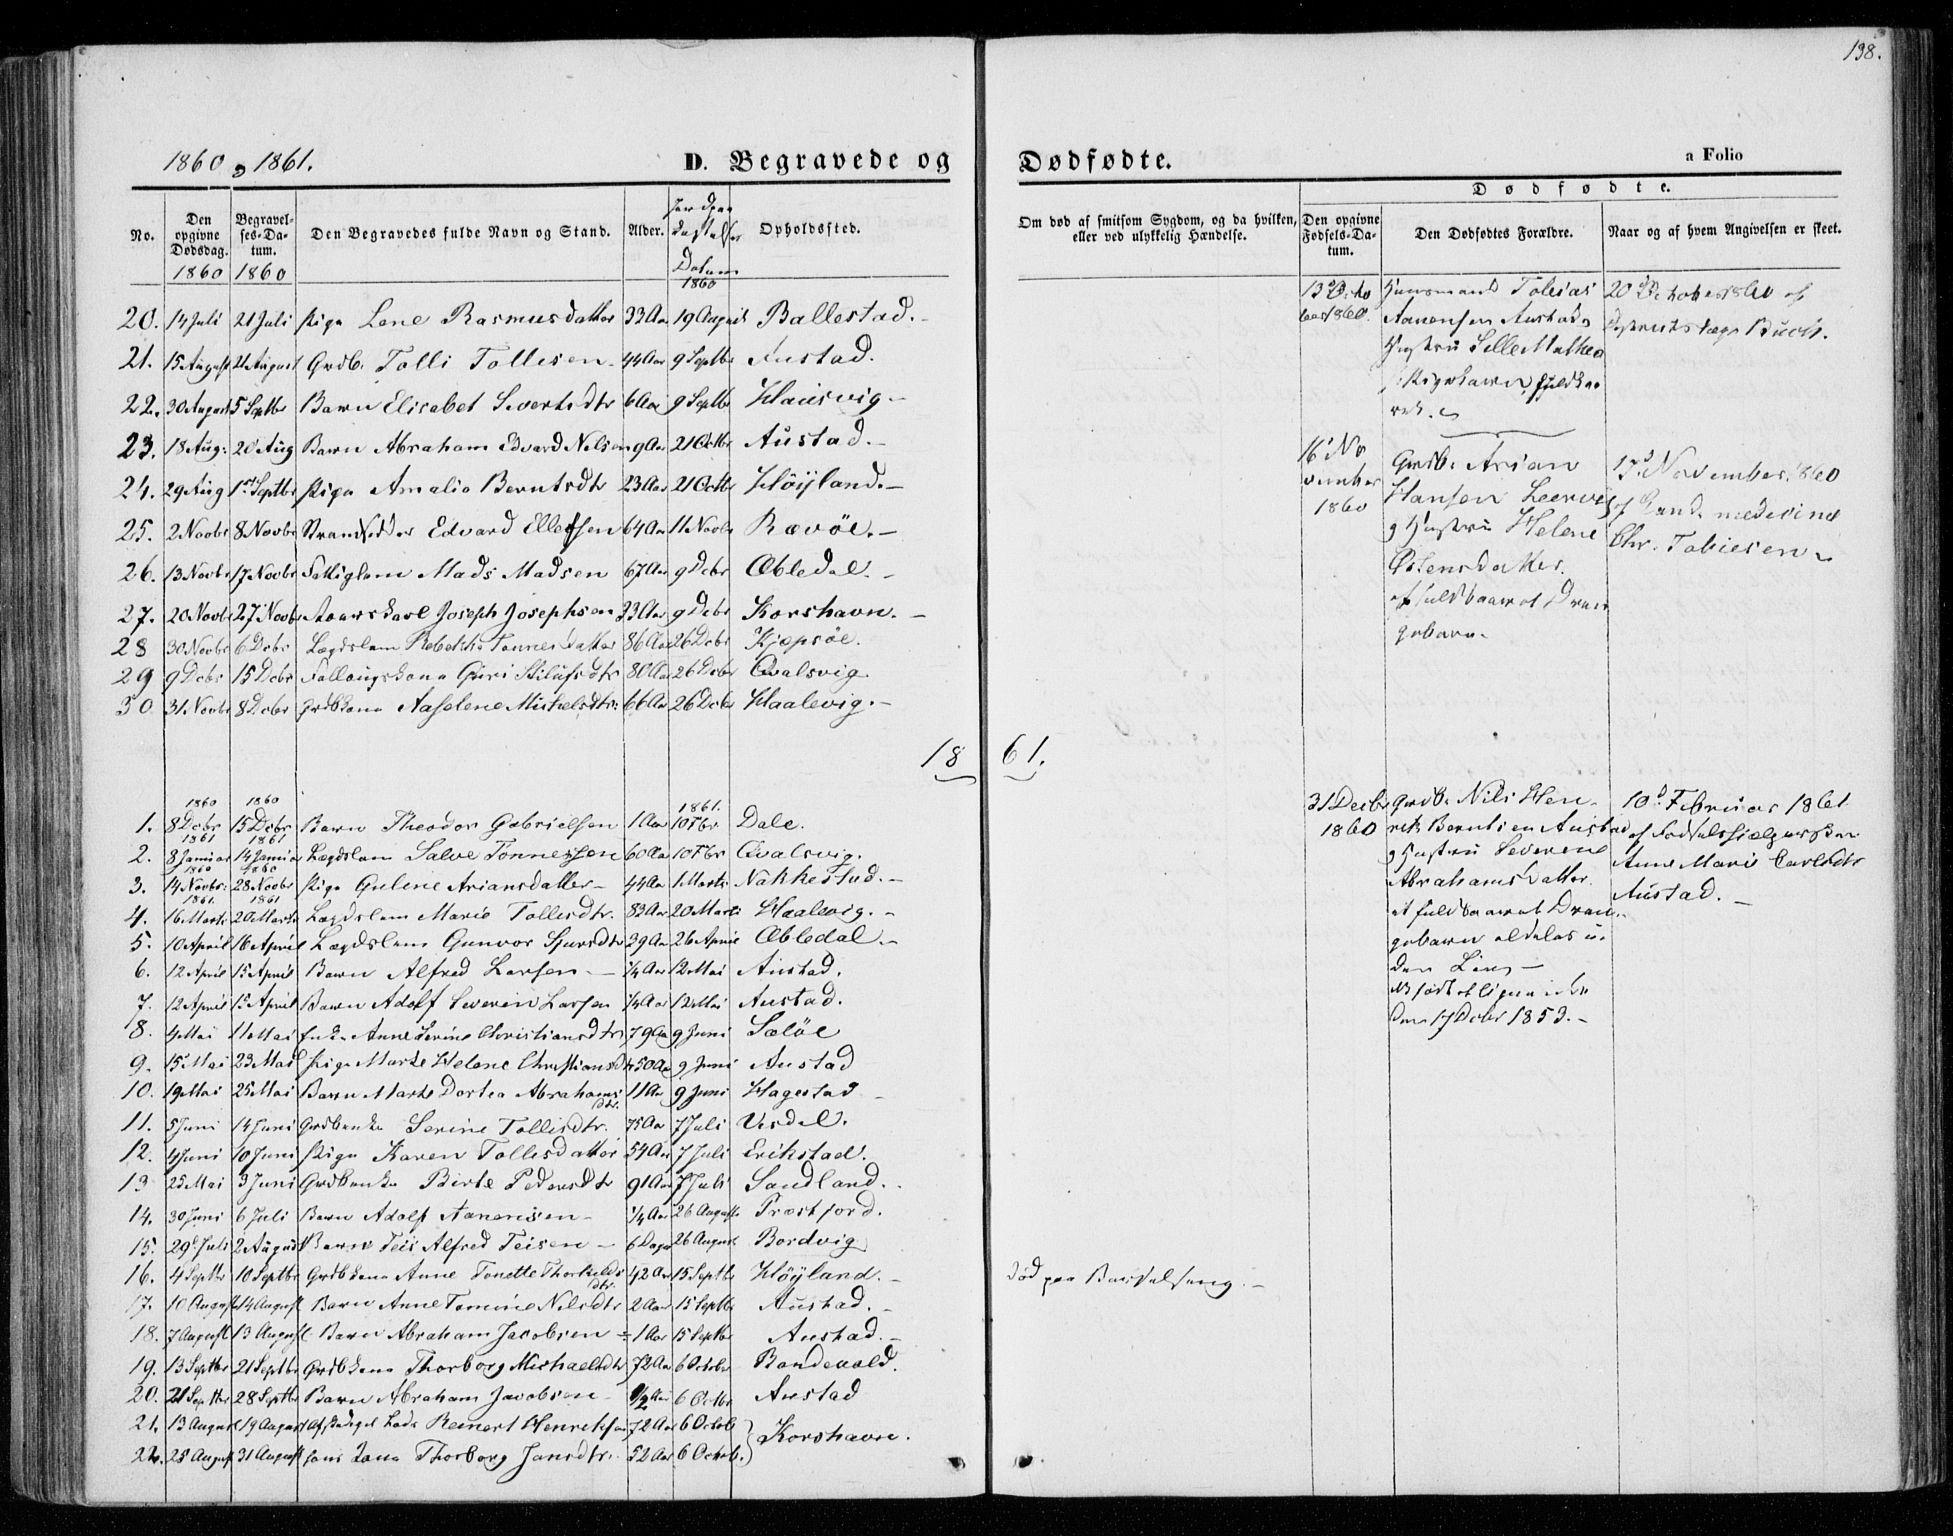 198.
1860 , 1861. D. Begravede og Dødfødte. a Folio
No. Den opgivne Dødsdag. 1860 Begravelses-Datum. 1860 Den Begravedes fulde Navn og Stand. Alder. Jordpaakastelses Datum 1860 Opholdssted.
20. 14 Juli 21 Juli Pige Lene Rasmusdatter 33 Aar 19 August Ballestad.
21. 15 August 21 August Grdb. Tolli Tollisen 44 Aar 9 Septbr Austad.
22. 30 August 5 Septbr Barn Elisabet Sivertsdtr 6 Aar 9 Septbr Hausvig
23. 18 Aug: 20 Aug Barn Abraham Edvard Nilsen 9 Aar 21 Octbr Austad.
24. 29 Aug 1st Septbr Pige Amalia Berntsdtr 23 Aar 21 Octbr Høyland.
25. 2 Novbr 8 Novbr Strandsidder Edvard Ellefsen 64 Aar 11 Novbr Rævøe.
26. 13 Novbr 17 Novbr Fattiglem Mads Madsen 67 Aar 9 Dcbr Æbledal.
27. 20 Novbr 27 Novbr Joseph Josephsen 33 Aar 9 Dcbr Korshavn.
28 30 Novbr 6 Dcbr Lægdslem Rebekka Tønnesdatter 86 Aar 26 Dcbr Kjepsöe.
29 9 Dcbr 15 Dcbr Follougskone Guri 80 Aar 26 Dcbr Qvalsvig
30 31 Novbr 8 Dcbr Grdbkone Aaselene Michelsdtr: 66 Aar 26 Dcbr Haalevig.
1861.
1860 1860 1861.
1. 8 Dcbr 15 Dcbr Barn Theodor Gabrielsen 1 Aar 10 Fbr Dale.
1861 1861
2. 8 Januar 14 Januar Lægdslem Salve Tønnessen 60 Aar 10 Fbr Qvalsvig.
1860 1860
3. 14 Novbr: 28 Novbr Pige Gulene Ariansdatter 44 Aar 1 Marts Nakkestad.
1861. 1861
4. 16 Marts 20 Marts Lægdslem Marie Tollisdtr. 83 Aar 20 Marts Haalevig.
5. 10 April 16 April Lægdslem Gunvor Sjursdtr 39 Aar 26 April Æbledal.
6. 12 April 15 April Barn Alfred Larsen 1/4 Aar 12 Mai Austad.
7. 12 April 15 April Barn Adolf Severin Larsen 1/4 Aar 12 Mai Austad.
8. 4 Mai 11 Mai Enke Anne Serine Christiansdtr 79 Aar 9 Juni Sæløe
9. 15 Mai 23 Mai Pige Marte Helene Christiansd 50 Aar 9 Juni Austad
10. 19 Mai 25 Mai Barn Marte Dortea Abrahamsdtr. 11 Aar 9 Juni Hagestad
11. 5 Juni 14 Juni Grdbenke Serine Tollisdtr. 75 Aar 7 Juli Urdal.
12. 4 Juni 10 Juni Pige Karen Tollisdatter 54 Aar 7 Juli Erikstad.
13 25 Mai 3 Juni Grdbenke Birte Pedersdtr 91 Aar 7 Juli Sandland.
14. 30 Juni 6 Juli Barn Adolf Aanensen 1/4 Aar 26 August Præstfjord.
15. 29 Juli 2 August Barn Teis Alfred Teisen 6 Dage 26 August Bordvig
16. 4 Septbr 10 Septbr Grdbkone Anne Tonette Thorkildsdtr. 42 Aar 15 Septbr Høyland. død paa Barselseng.
17. 10 August 14 August Barn Anne Tomine Nilsdtr 2 Aar 15 Septbr Austad.
18. 7 August 13 August Barn Abraham Jacobsen 1 Aar 15 Septbr Austad.
19. 13 Septbr 21 Septbr Grdbkone Thorborg Michaelsdtr 72 Aar 6 October Bandevold.
20. 21 Septbr 28 Septbr Barn Abraham Jacobsen 1/2 Aar 6 Octbr Austad
21. 13 August 19 August Reinert Henriksen 72 Aar 6 Octob
22. 25 August 31 August hans Kone Thorborg Jansdtr. 52 Aar 6 Octob. Korshavn.
Om død af smitsom Sygdom, og da hvilken, eller ved ulykkelig Hændelse.
Dødfødte.
Den opgivne Fødsels-Datum. Den Dødfødtes Forældre. Naar og af hvem Angivelsen er skeet.
13 October 1860. Huusmand Tobias 20 October 1860 af
Aanensen Austad Districtslæge Buch.
Hustru Sille
Pigebarn, fuldbaaret.
16 November 1860 Grdb. Arian 17d November 1860
Hansen Leervig af Cand. medicine
og Hustru Helene Chr. Tobiesen
Ostensdatter.
et fuldbaaret Drengebarn.
31 Decbr 1860 Grdb. Nils Henrik Berntsen Austad 10d Februar 1861
og Hustru Severine af Fødselshjælpersken
Abrahamsdatter. Anne Marie Carlsdtr
et fuldbaaret Drengebarn aldeles uden Liv Austad.
den 17 Dcbr 1853.